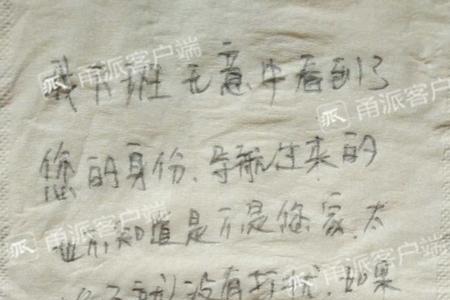 我下班无意中看到了
您的身份、导航过来的
也不知道是不是您家.太
晚了就没有打扰.如果
甬派客户端
甬派客户端
甬派客户端
甬派客户端